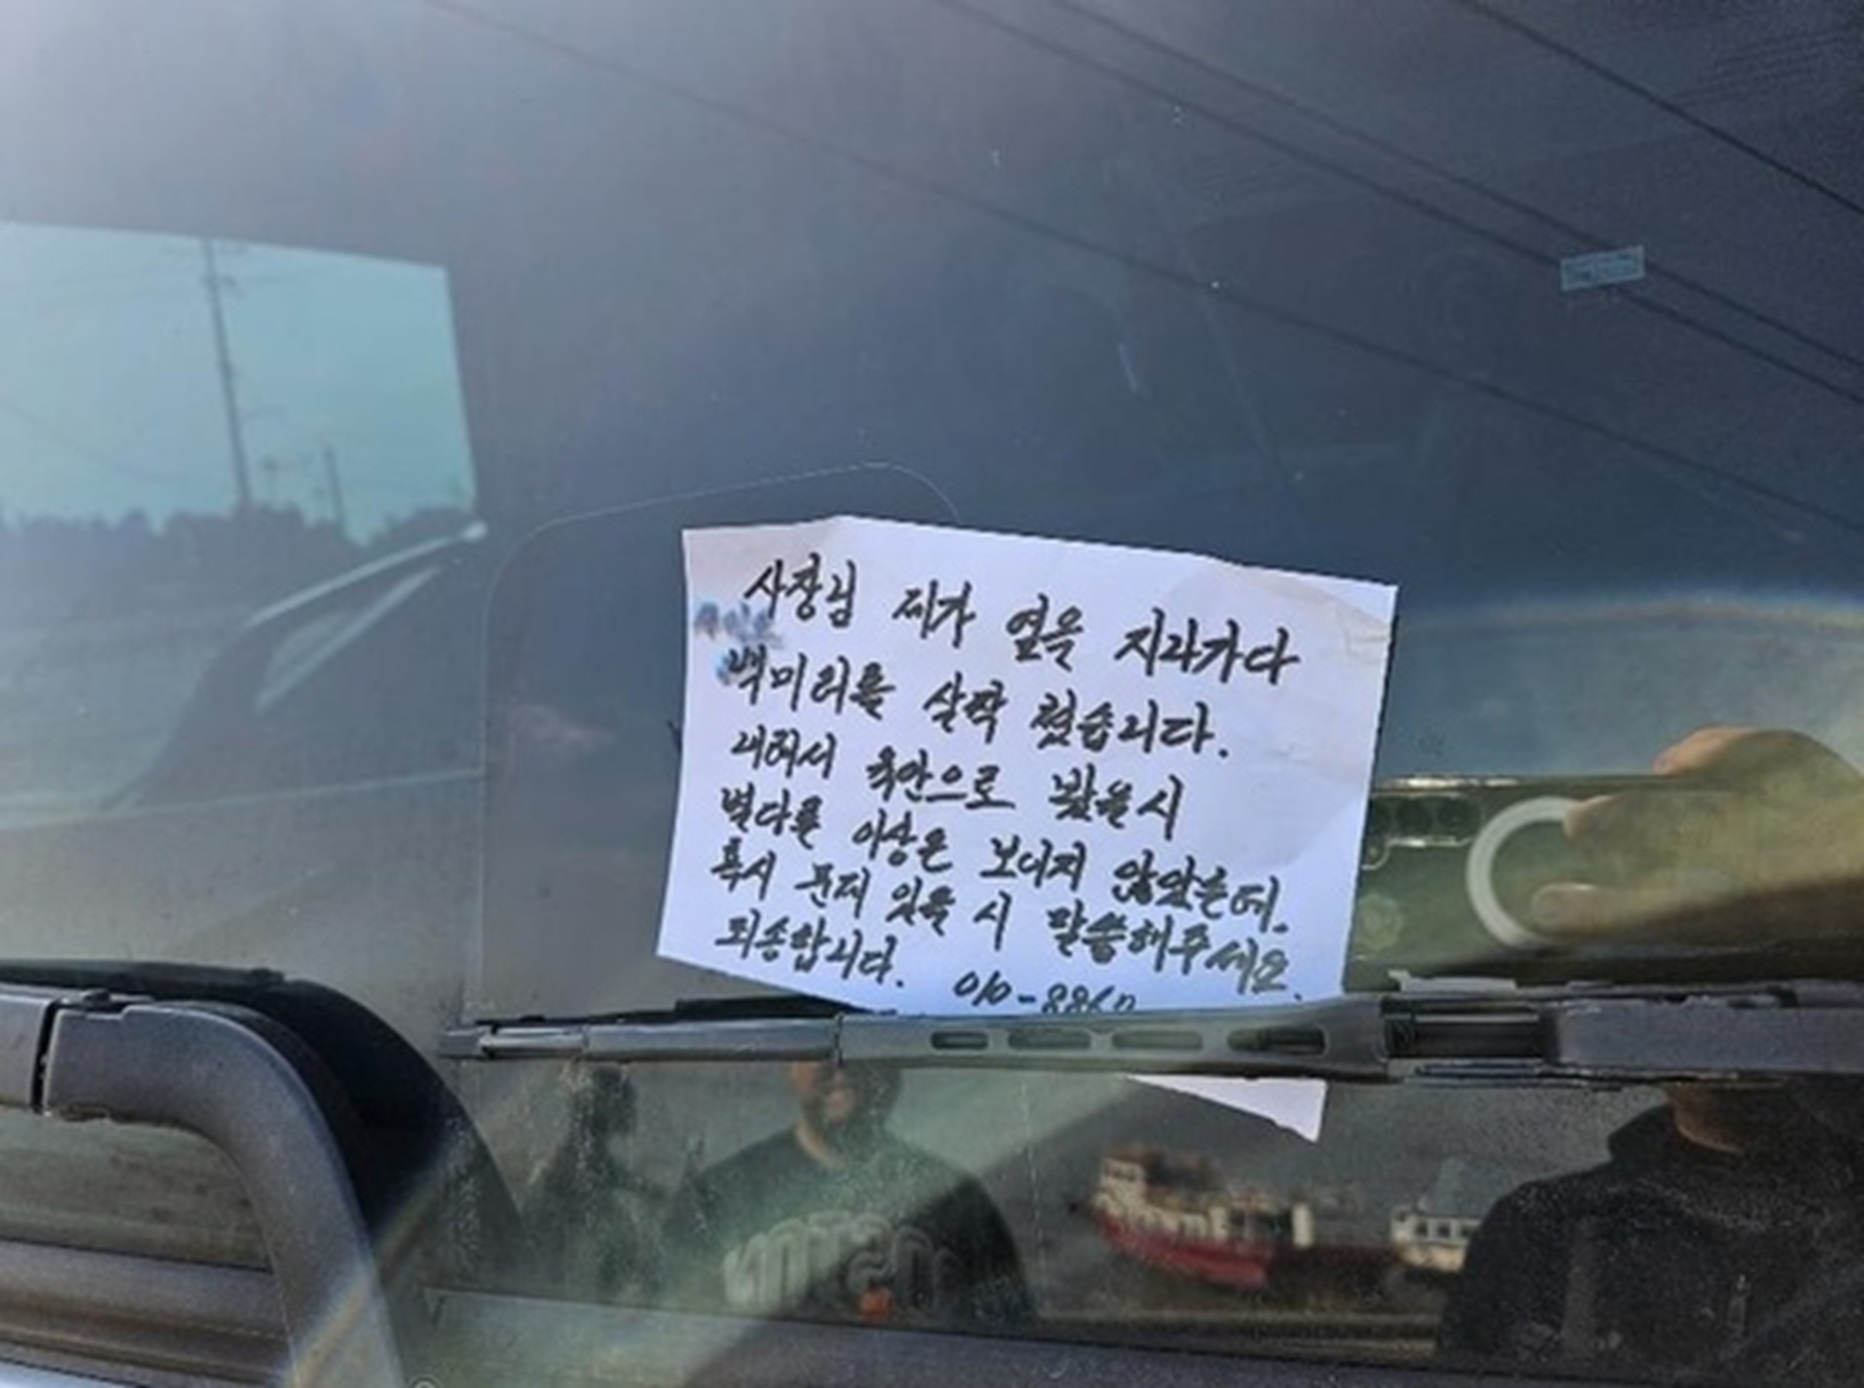 사장님 제가 옆을 지나가다
백미러를 살짝 쳤습니다.
내려서 육안으로 봤을시
별다른 이상은 보이지 않았는데.
혹시 문제 있을 시 말씀해주세요.
죄송합니다. 010-8860